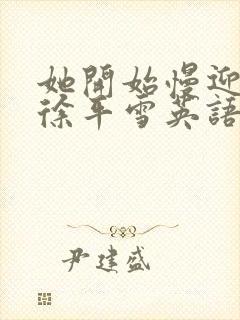 她開始慢迎
徐平雪英語
尹建盛